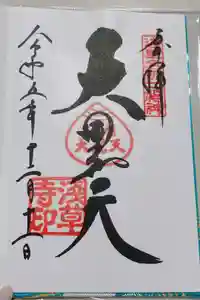 奉拝
大黒天
令和五年十二月十二日
浅草寺印